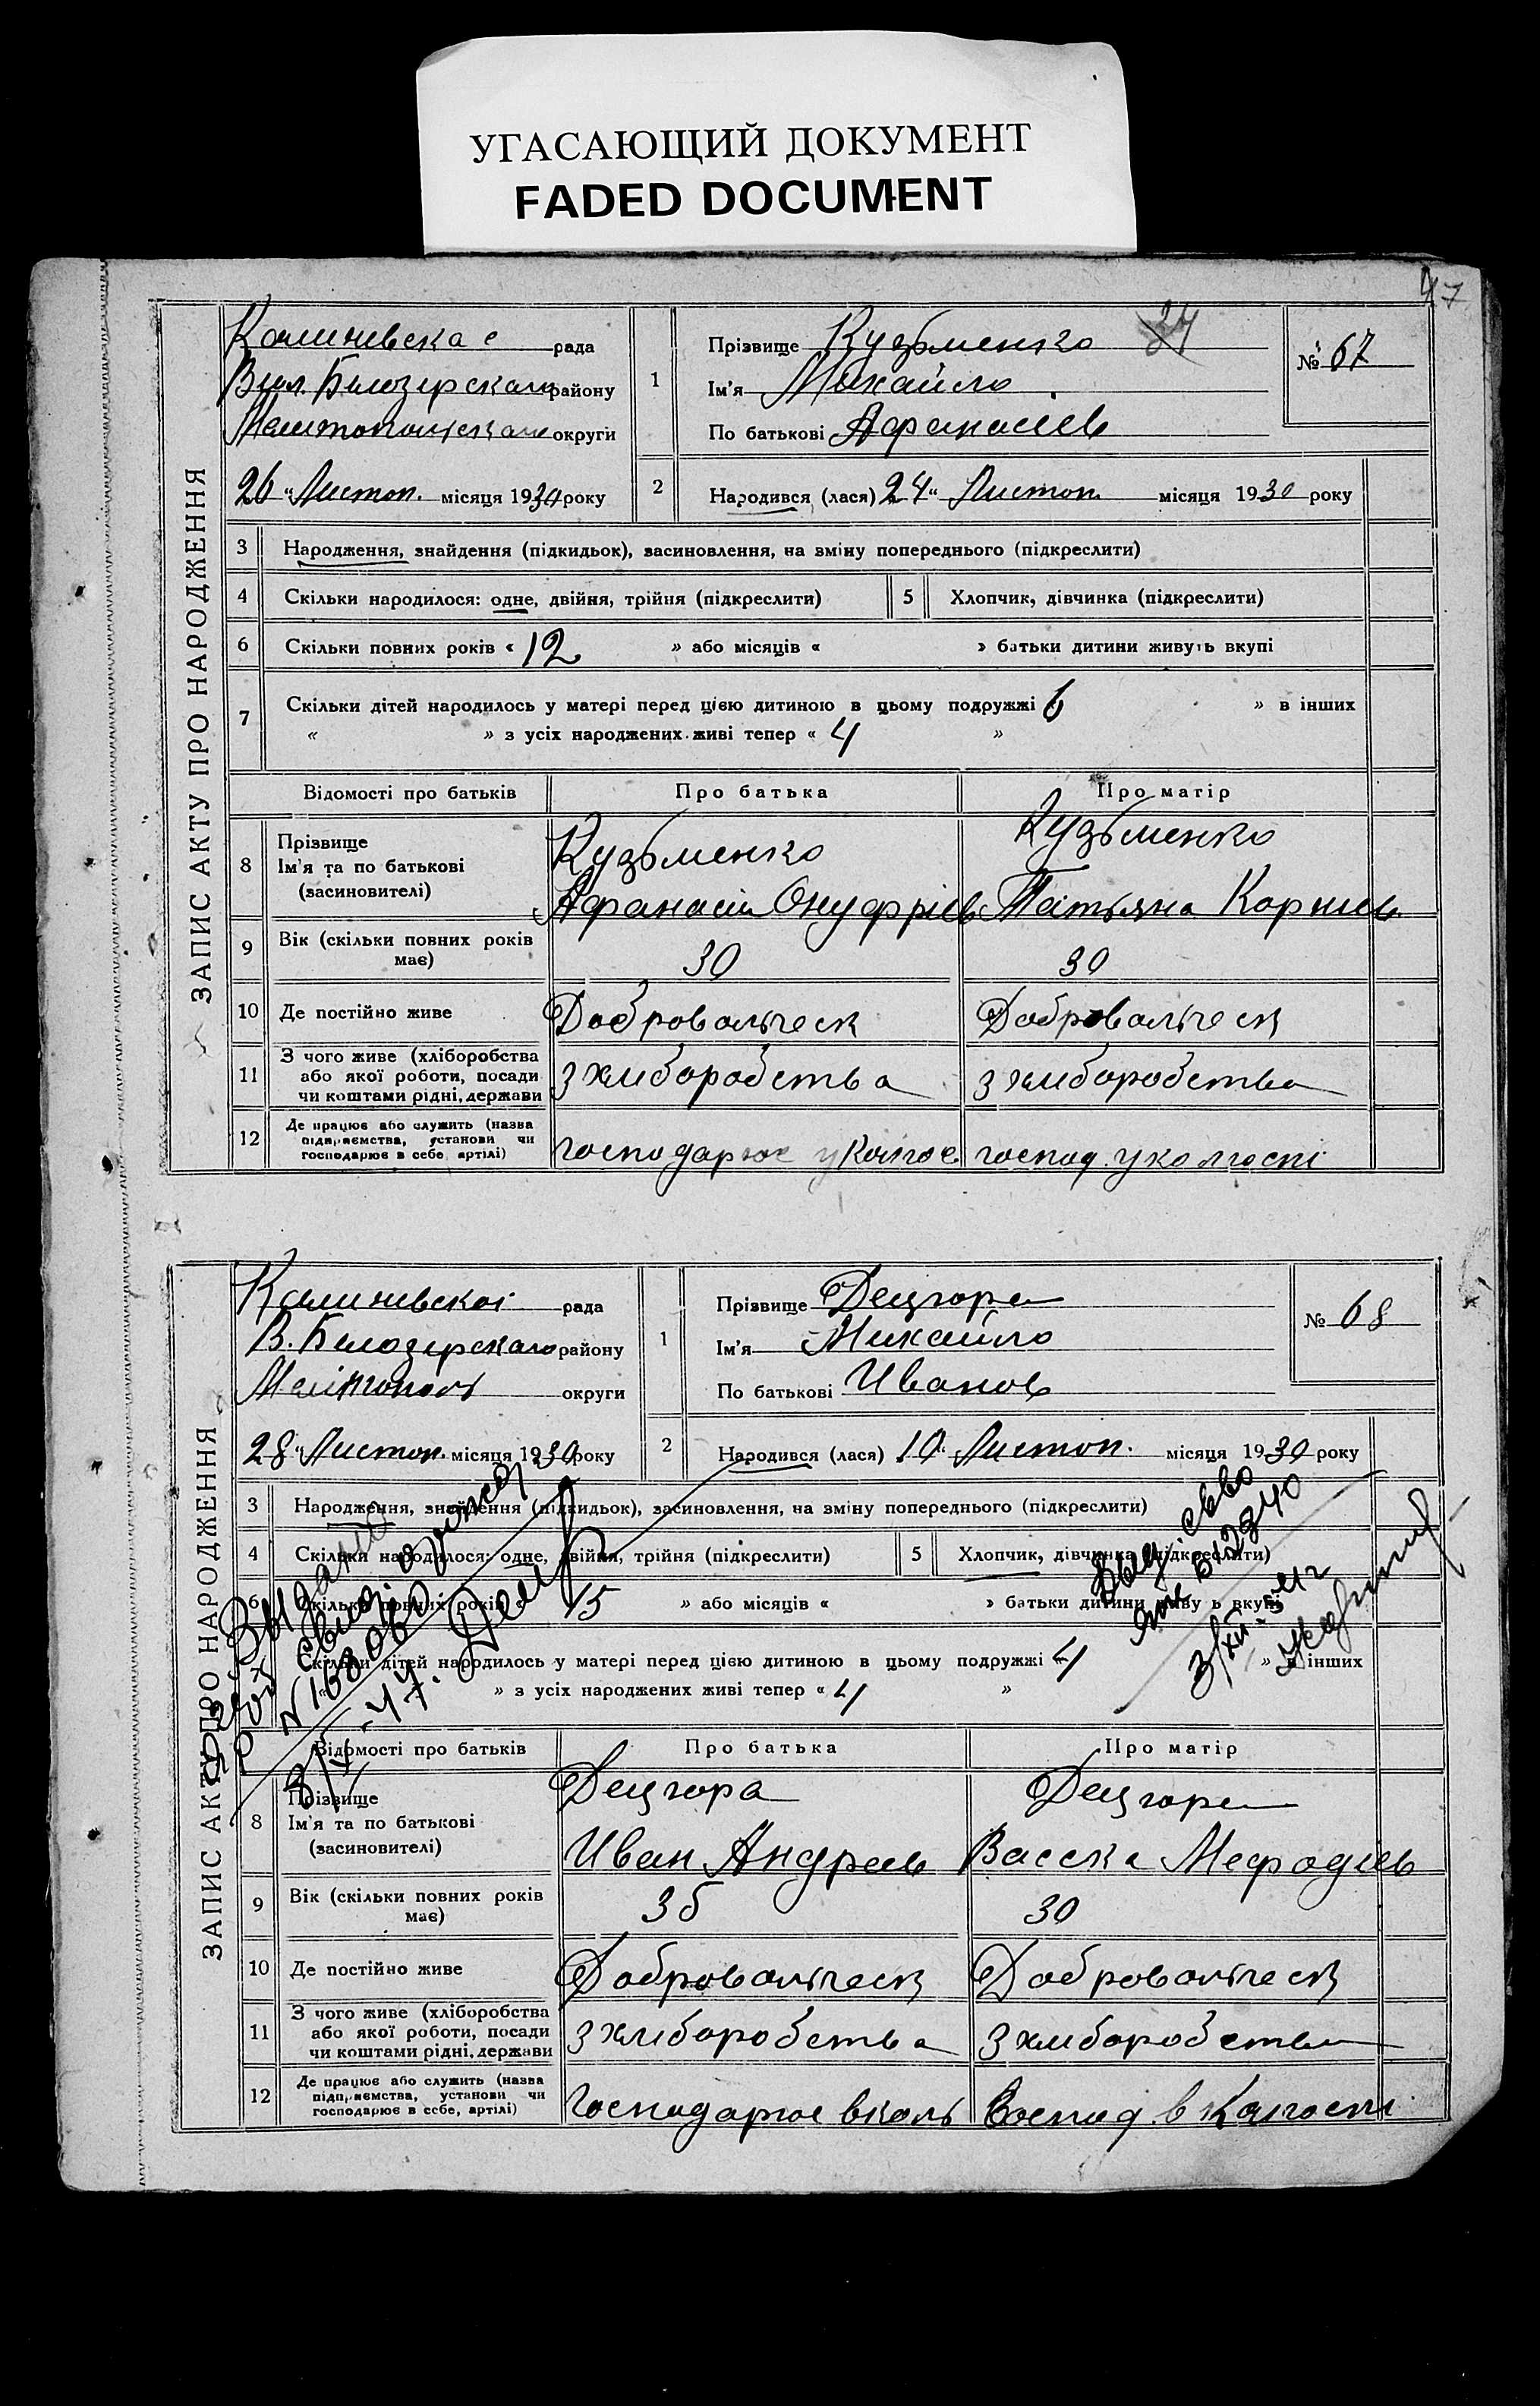 УГАСАЮЩИЙ ДОКУМЕНТ
FADED DOCUMENT
47
ЗАПИС АКТУ ПРО НАРОДЖЕННЯ
рада
району
округи
26 "Листоп. місяця 1930 року
1
Прізвище Кузьменко 34
Ім'я Михайло
По батькові Афанасиев
№ 67
2
Народився (лася) 24 " Листоп. місяця 1930 року
3 Народження, знайдення (підкидьок), засиновлення, на зміну попереднього (підкреслити)
4 Скільки народилося: одне, двійня, трійня (підкреслити) 5 Хлопчик, дівчинка (підкреслити)
6 Скільки повних років « 12 » або місяців « » батьки дитини живуть вкупі
7 Скільки дітей народилось у матері перед цією дитиною в цьому подружжі 6 » в інших
« » з усіх народжених живі тепер « 4 »
Відомості про батьків Про батька Про матір
8 Прізвище
Ім'я та по батькові
(засиновителі)
Кузьменко
Афанасий Онуфриев
Кузьменко
Татьяна Корниев
9 Вік (скільки повних років має) 30 30
10 Де постійно живе
11 З чого живе (хліборобства
або якої роботи, посади
чи коштами рідні, держави
З хлиборобства З хлиборобства
12 Де працює або служить (назва
підприємства, установи чи
господарює в себе, артілі)
господарює у колгос господ. у колгоспі
ЗАПИС АКТУ ПРО НАРОДЖЕННЯ
рада
В. Билозерскаго району
округи
28 "Листоп. місяця 1930 року
1
Прізвище Децгора
Ім'я Михайло
По батькові Иванов
№ 68
2
Народився (лася) 10 " Листоп. місяця 1930 року
3 Народження, знайдення (підкидьок), засиновлення, на зміну попереднього (підкреслити)
4 Скільки народилося: одне, двійня, трійня (підкреслити) 5 Хлопчик, дівчинка (підкреслити)
6 Скільки повних років « 15 » або місяців « » батьки дитини живуть вкупі
Скільки дітей народилось у матері перед цією дитиною в цьому подружжі « 4 » в інших
» з усіх народжених живі тепер « 4 »
Відомості про батьків Про батька Про матір
8 Прізвище
Ім'я та по батькові
(засиновителі)
Децгора
Иван Андреев
Децгора
Васска Мефодиев
9 Вік (скільки повних років має) 30
10 Де постійно живе
11 З чого живе (хліборобства
або якої роботи, посади
чи коштами рідні, держави
З хлиборобства З хлиборобства
12 Де працює або служить (назва
підприємства, установи чи
господарює в себе, артілі)
господарює в коль Господ в Колгоспі